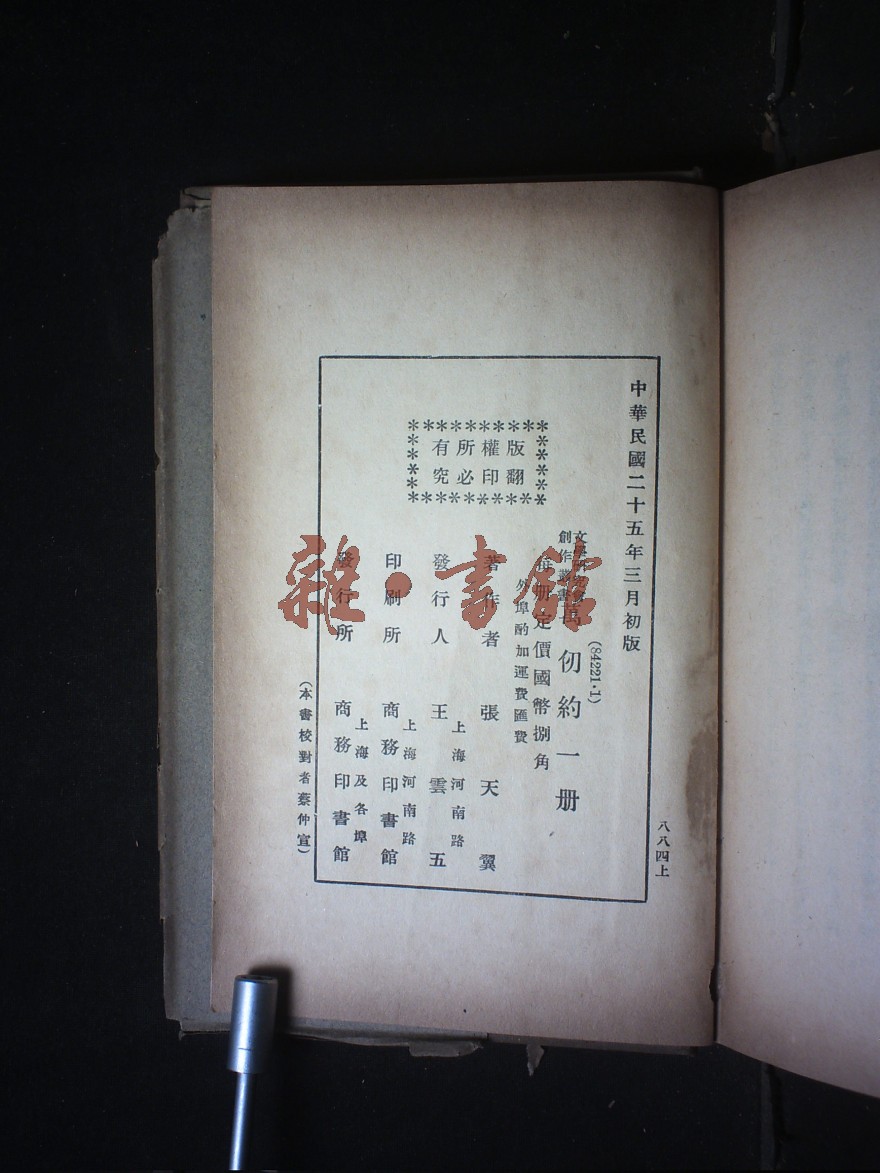 中華民國二十五年三月初版
(84221·1)
文學研究會創作叢書 萬仞約一册
每册定價國幣捌角
外埠酌加運費匯費
版權所有
翻印必究
著作者 張天翼
發行人 王雲五
上海河南路
印刷所 商務印書館
上海河南路
發行所 商務印書館
上海及各埠
(本書校對者蔡仲宣)
八八四上
雜·書館